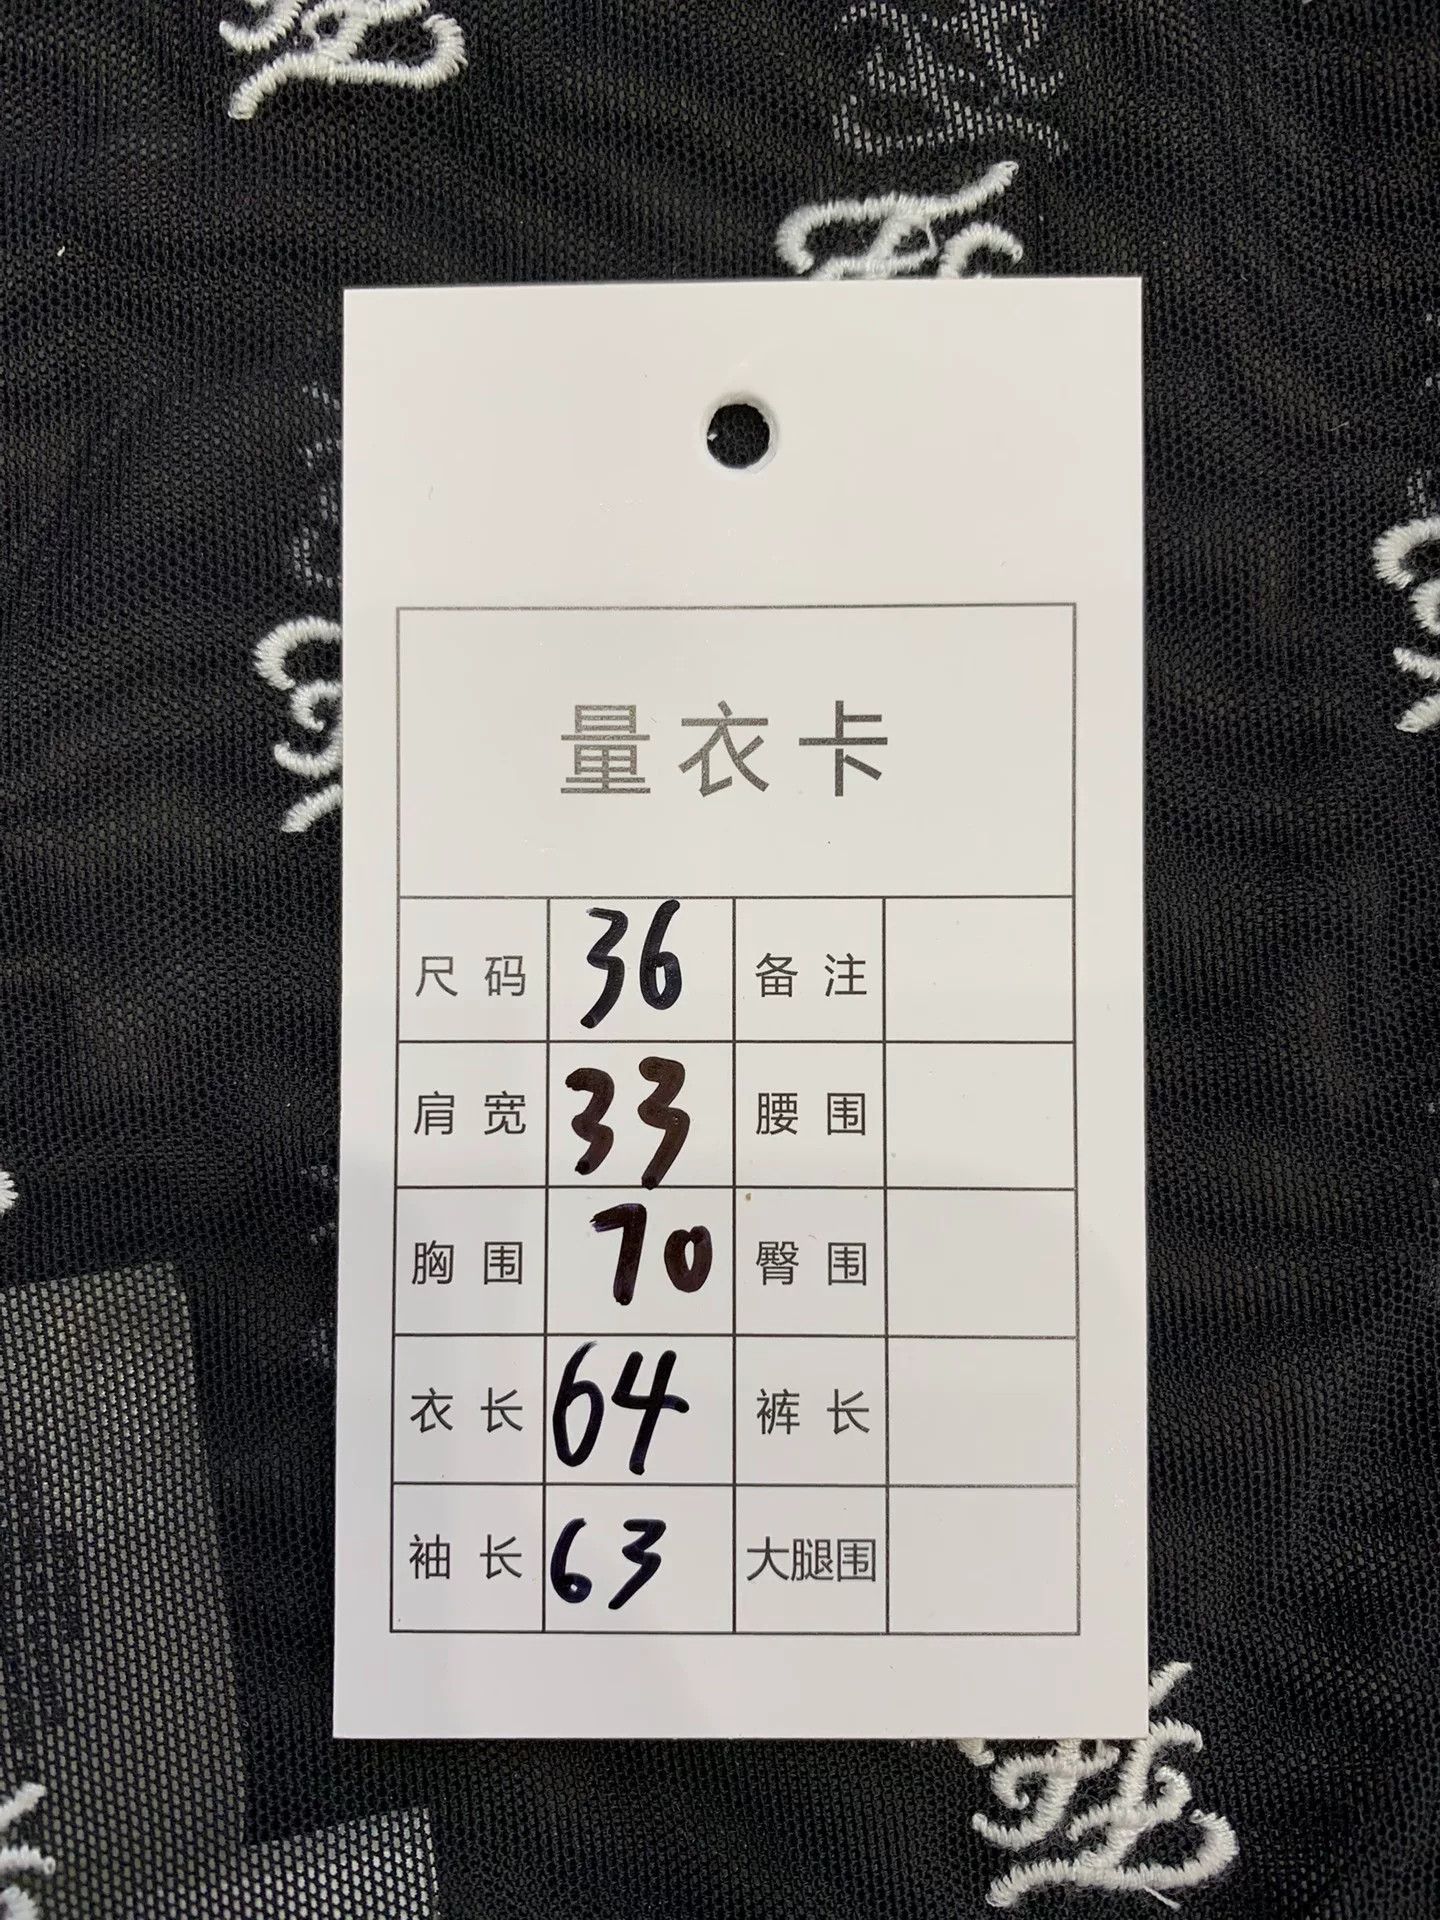 量衣卡
尺码 36 备注
肩宽 33 腰围
胸围 70 臀围
衣长 64 裤长
袖长 63 大腿围